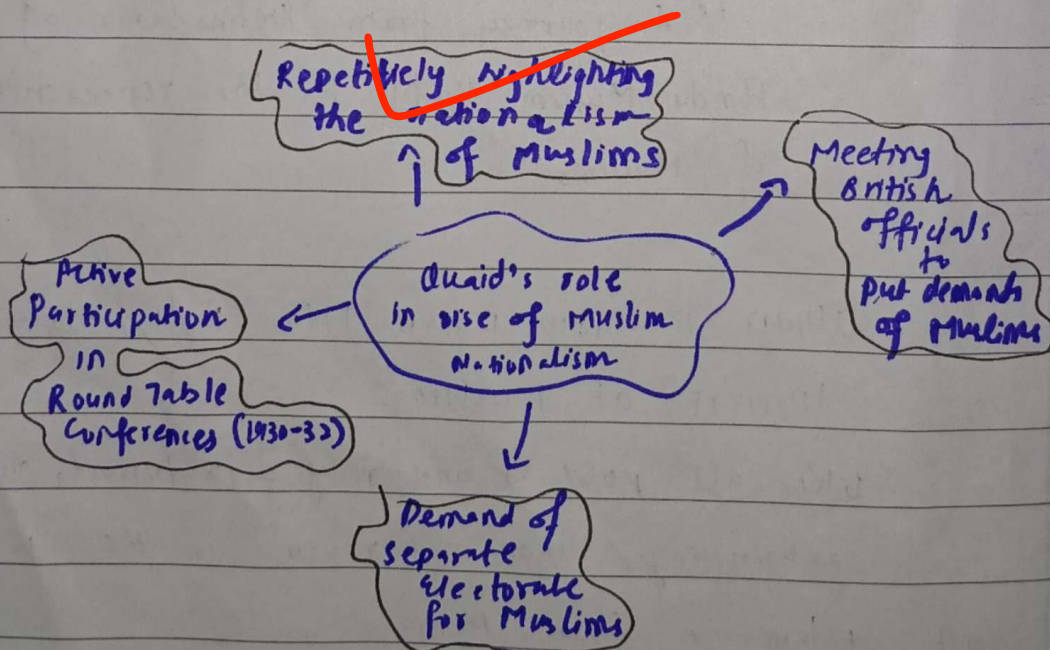 Repetitively highlighting
the nationalism
of Muslims
Meeting
British
officials
to
put demands
of Muslims
Quaid's role
in rise of Muslim
Nationalism
Active
Participation
in
Round Table
Conferences (1930-32)
Demand of
separate
Electorate
for Muslims